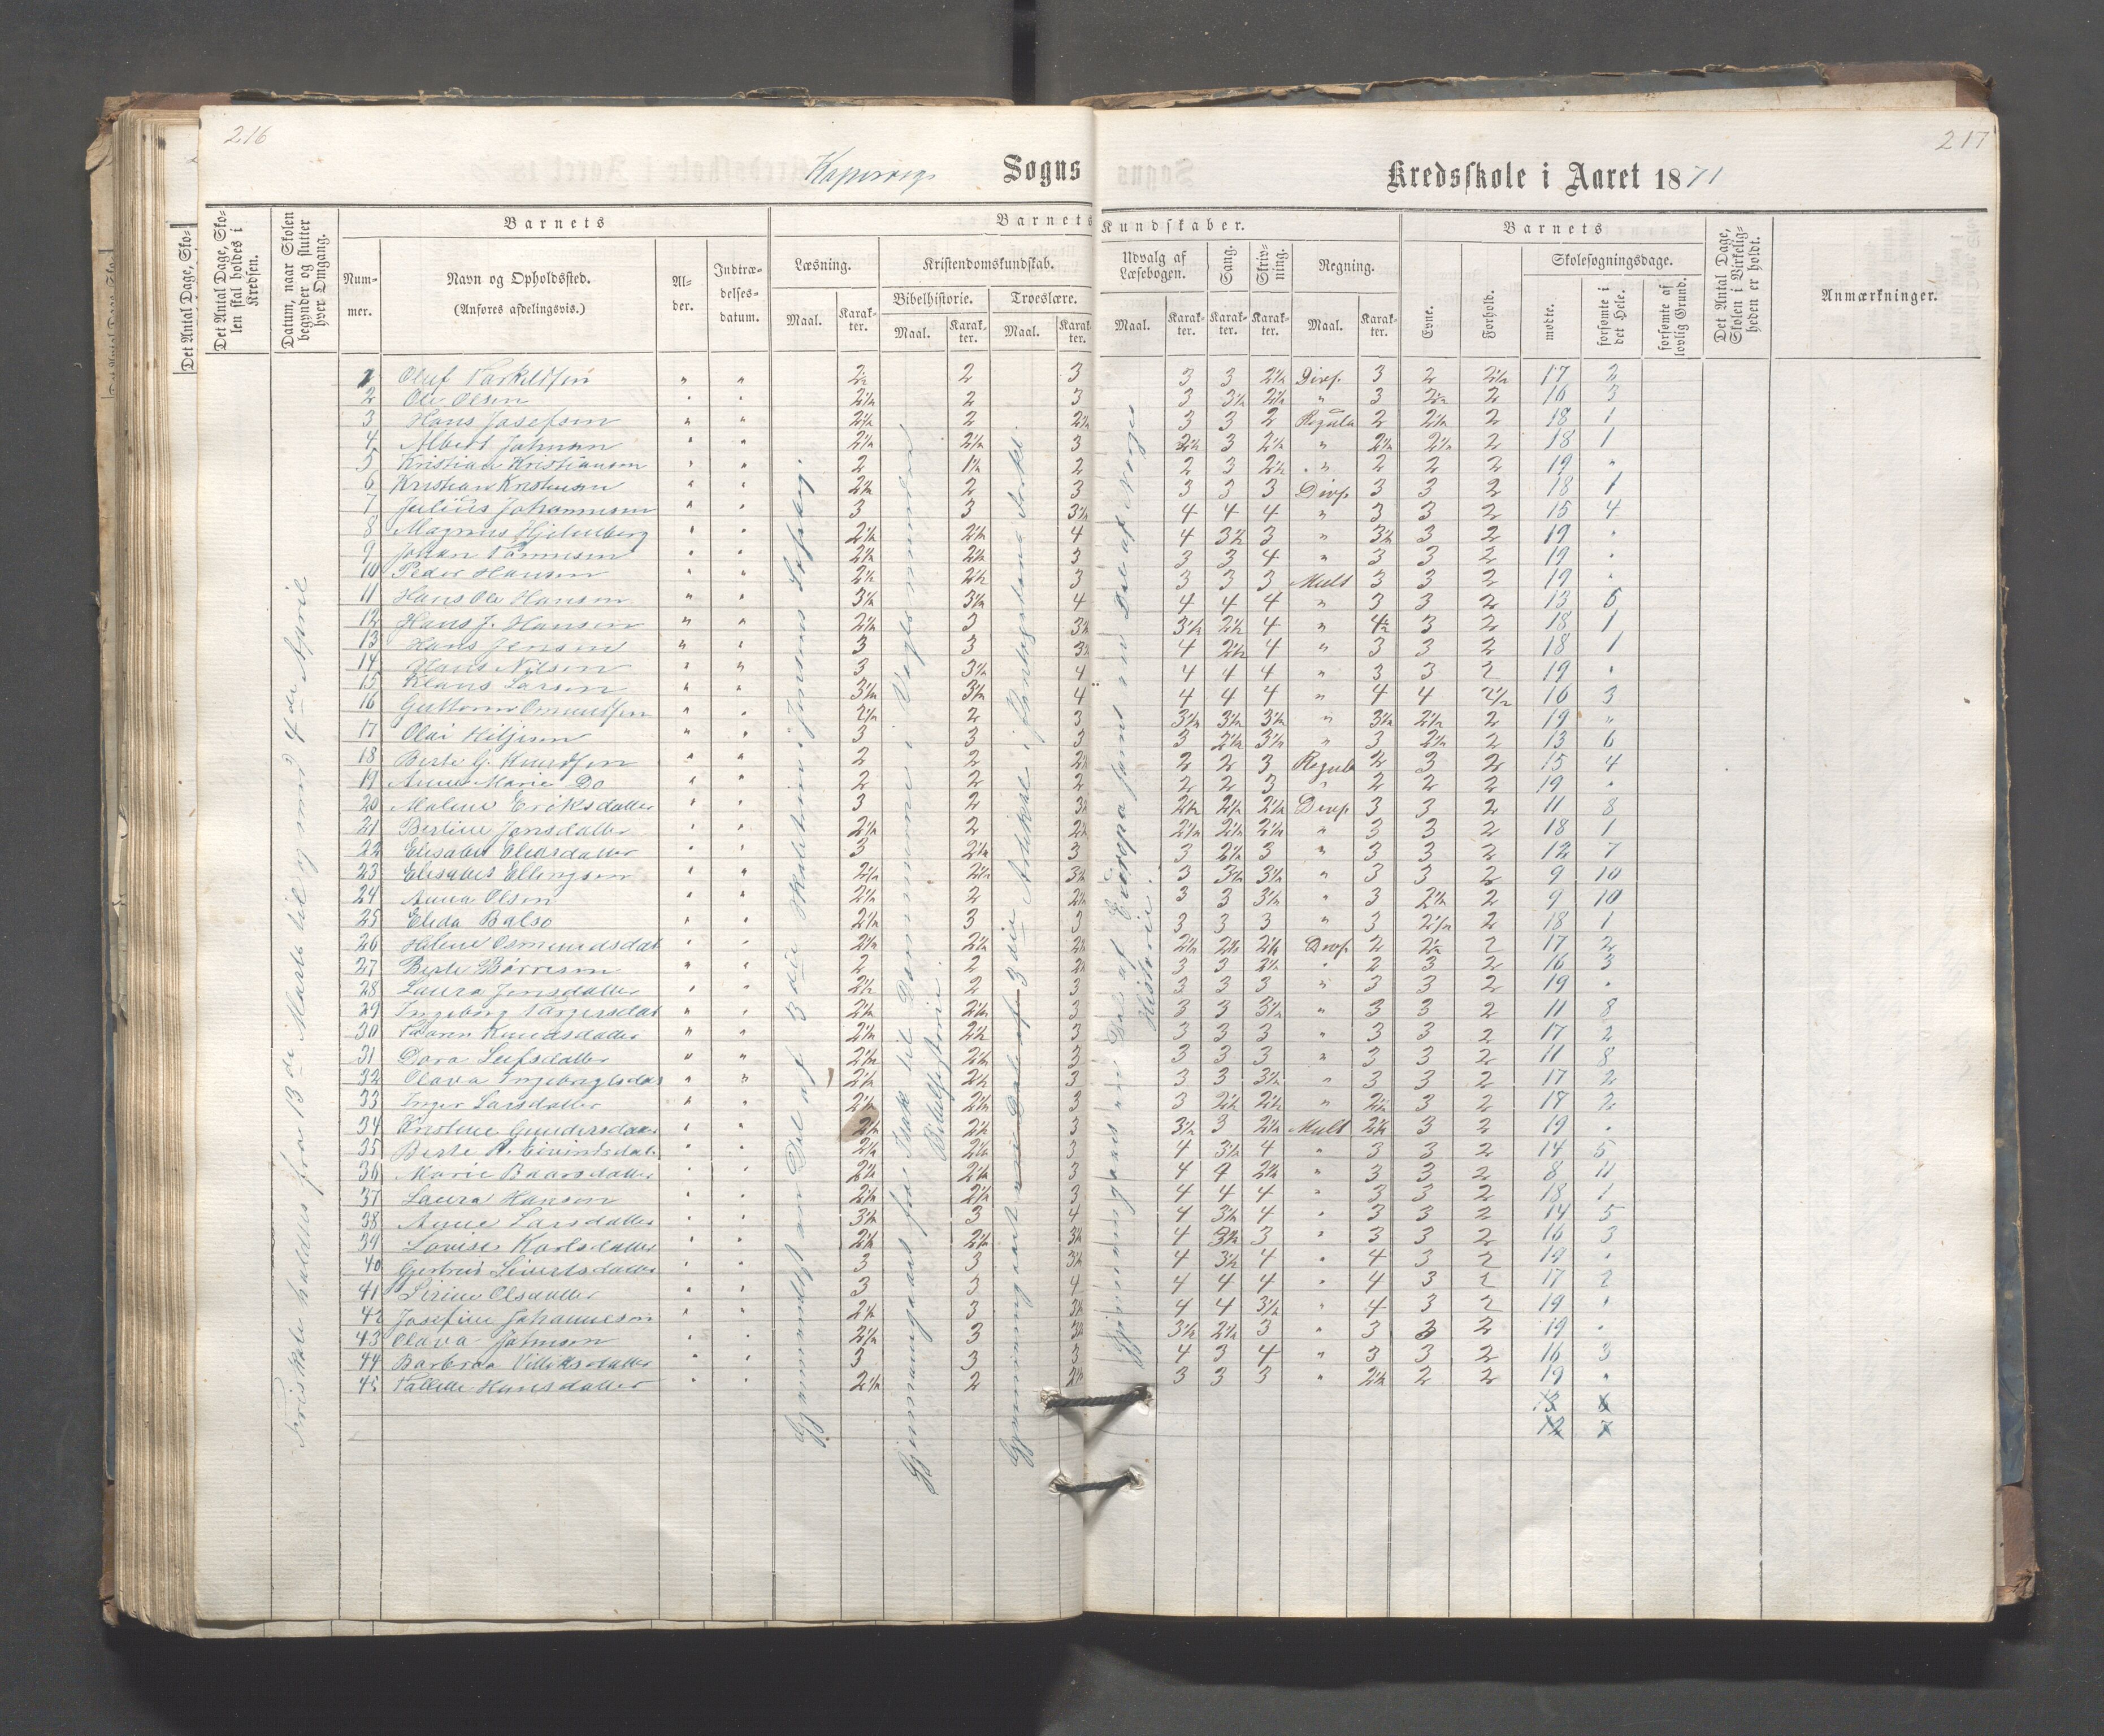 216
217
Sogns
Kredsskole i Aaret 1871
Det Antal Dage, Sko-
Det Antal Dage, Sko-
len skal holdes i
Kredsen.
Datum, naar Skolen
begynder og slutter
hver Omgang.
Barnets
Num-
mer.
Navn og Opholdssted.
(Anføres afdelingsvis.)
Al-
der.
Indtræ-
delses-
datum.
Barnets Kundskaber.
Læsning.
Maal.
Karak-
ter.
Kristendomskundskab.
Bibelhistorie.
Maal.
Karak-
ter.
Troeslære.
Maal.
Karak-
ter.
Udvalg af
Læsebogen.
Maal.
Karak-
ter.
Sang.
Karak-
ter.
Skriv-
ning.
Karak-
ter.
Regning.
Maal.
Karak-
ter.
Barnets
Evne.
Forhold.
Skolesøgningsdage.
mødte.
forsømte i
det Hele.
forsømte af
lovlig Grund.
Det Antal Dage,
Skolen i Virkelig-
heden er holdt.
Anmærkninger.
1 Oluf Torkildsen " " 2½ 2 3 3 3 2½ Divs. 3 2 2½ 17 2
2 Ole Olsen " " 2½ 2 3 3 3½ 2½ " 3 2½ 2 16 3
3 Hans Josefsen " " 2½ 2 2½ 3 3 2 Regula 2 2½ 2 18 1
4 Albert Johnsen " " 2½ 2½ 3 2½ 3 2½ " 2½ 2½ 2 18 1
5 Kristian Kristiansen " " 2 1½ 2 2 3 2½ " 2 2 2 19 "
6 Kristian Kristensen " " 2½ 2 3 3 3 3 Divs. 3 3 2 18 1
7 Julius Johannesen " " 3 3 3½ 4 4 4 " 3 3 2 15 4
8 Magnus Hjelmberg " " 2½ 2½ 4 4 3½ 3 " 3½ 3 2 19 "
9 Johan Tønnesen " " 2½ 2½ 3 3 3 4 " 3 3 2 19 "
10 Peder Hansen " " 2½ 2½ 3 3 3 3 Mult 3 3 2 19 "
11 Hans Ole Hansen " " 3½ 3½ 4 4 4 4 " 3 3 2 13 6
12 Hans J. Hansen " " 2½ 3 3½ 3½ 2½ 4 " 4½ 3 2 18 1
13 Hans Jensen " " 3 3 3½ 4 2½ 4 " 3 3 2 18 1
14 Hans Nilsen " " 3 3½ 4 4 4 4 " 3 3 2 19 "
15 Klaus Larsen " " 3½ 3½ 4 4 4 4 " 4 4 2½ 16 3
16 Guttorm Osmundsen " " 2½ 2 3 3½ 3½ 3½ " 3½ 2½ 2 19 "
17 Olai Hiljesen " " 3 3 3 3 2½ 3½ " 3 2½ 2 13 6
18 Berte G. Knudsen " " 2 2 2½ 2 2 3 Regula 2 3 2 15 4
19 Anne Marie Do " " 2 2 2 2 2 3 " 2 2 2 19 "
20 Maline Eriksdatter " " 3 2 3½ 2½ 2½ 2½ Divs. 3 3 2 11 8
21 Bertine Jonsdatter " " 2½ 2 2½ 2½ 2½ 2½ " 3 3 2 18 1
22 Elisabet Olersdatter " " 3 2½ 3 3 2½ 3 " 3 3 2 12 7
23 Elisabet Ellingsen " " 2½ 2½ 3½ 3 3½ 3½ " 3 3 2 9 10
24 Anna Olsen " " 2½ 2 2½ 3 3 3½ " 3 2½ 2 9 10
25 Elida Balso " " 2½ 3 3 3 3 3 " 3 2½ 2 18 1
26 Helene Osmundsdat " " 2½ 2½ 2½ 2½ 2½ 2½ Divs. 2 2½ 2 17 2
27 Berte Børresen " " 2 2 2½ 3 3 2½ " 2 3 2 16 3
28 Laura Jensdatter " " 2½ 2 3 3 3 3 " 3 3 2 19 "
29 Ingeborg Torgersdat " " 2½ 2½ 3 3 3 3½ " 3 3 2 11 8
30 Karen Knudsdatter " " 2½ 2½ 3 3 3 3 " 3 3 2 17 2
31 Dora Leifsdatter " " 2½ 2½ 3 3 3 3 " 3 3 2 11 8
32 Olava Ingebregtsdat " " 2½ 2½ 3 3 3 3½ " 3 3 2 17 2
33 Inger Larsdatter " " 2½ 2½ 3 3 2½ 2½ " 2½ 3 2 17 2
34 Kristine Gundersdatter " " 2½ 2½ 3 3½ 3 2½ Mult 2½ 3 2 19 "
35 Berte A. Eivindsdat. " " 2½ 2½ 3 4 3½ 4 " 3 3 2 14 5
36 Marie Baarsdatter " " 2½ 2½ 3 4 4 2½ " 3 3 2 8 11
37 Laura Hansen " " 2½ 2½ 3 4 4 4 " 3 3 2 18 1
38 Anne Larsdatter " " 3½ 3 4 4 3½ 4 " 3 3 2 14 5
39 Lovise Karlsdatter " " 2½ 2½ 3½ 4 3½ 3 " 3 3 2 16 3
40 Gjertrud Sivertsdatter " " 3 3 3½ 4 3½ 4 " 4 3 2 19 "
41 Sirine Olsdatter " " 3 3 4 4 4 4 " 4 3 2 17 2
42 Josefine Johannesen " " 2½ 3 3½ 4 4 3½ " 4 3 2 19 "
43 Olava Johnsen " " 2½ 3 3½ 3½ 2½ 3 " 3 3 2 19 "
44 Barbroa Villiksdatter " " 3 3 3 4 3 4 " 3 3 2 16 3
45 Tallette Hansdatter " " 2½ 2 2½ 3 3 3 " 2½ 2 2 19 "
13 6
12 7
Friskole holdtes fra 13de Marts til og med 4de April
Gjennemgaaet fra Isak til Dommerne i Vogts mindre
Bibelhistorie.
Historie.